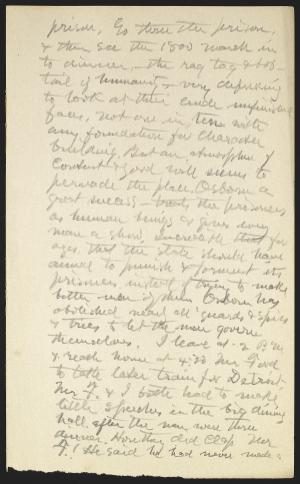 prison. Go thru the prison,
& then see the 1500 march in
to dinner, – the rag tag & bob-
tail of humanity – very depressing
to look at their crude unfinished
faces, not one in ten with
any foundation for character
building. But an atmosphere of
content & good will seems to
pervade the place. Osborn a
great success – treats the prisoners
as human beings & gives every
man a show. Incredible that for
ages, that the State should have
aimed to punish & torment its
prisoners instead of trying to make
better men of them. Osborn has
abolished nearly all guards & spies
& tries to let the men govern
themselves. I leave at 2 P.M.
& reach home at 4:30. Mr Ford
to take later train for Detroit.
Mr F. & I both had to make
little speeches in the big dining
hall after the men were thru
dinner. How they did clap Mr
F.! He said he had never made a